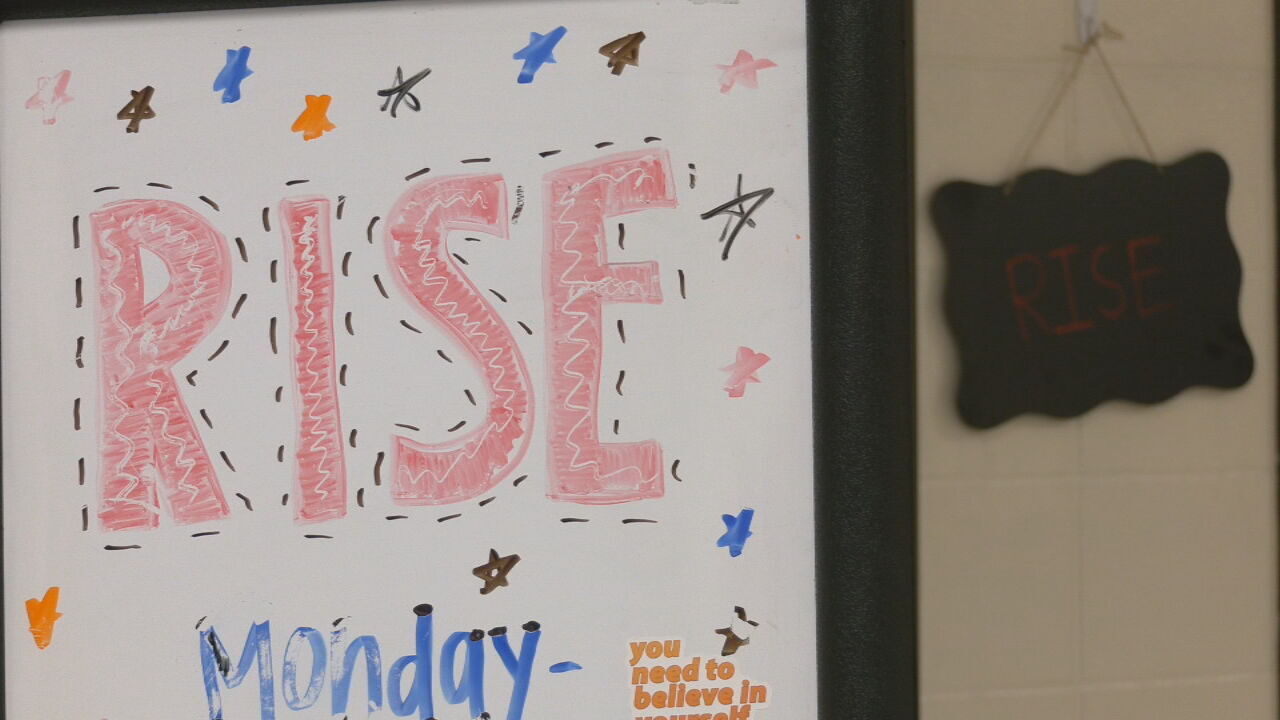 RISE
Monday-
you
need to
believe in
yourself
RISE